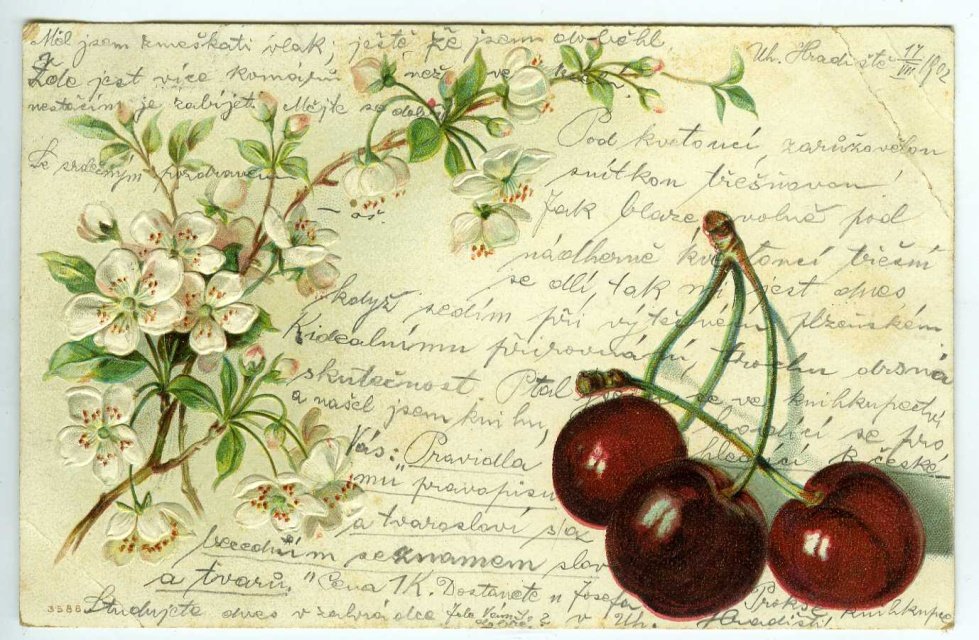 Měl jsem zmeškati vlak, ještě že jsem doběhl.
Zde jest více komárů než ve
nestačím je zabíjeti. Mějte se dobře
Se srdečným pozdravem
Uh. Hradiště 17/VIII 1902
Pod kvetoucí zarůžovělou
snítkou třešňovou!
Jak blaze volně pod
nádherně kvetoucí třešní
se dlí, tak mi jest dnes
když sedím při výtečném plzeňském
K idealnímu přirovnání, trochu drsná
skutečnost Ptal se ve knihkupectví
a našel jsem knihu, hodící se pro
Vás: „Pravidla hledící k české
mu pravopisu
a tvarosloví s'a
becedním seznamem slov
a tvarů." Cena 1 K. Dostanete u Josefa
3588 Studujete dnes v zahrádce v Uh. Hradišti Prokše knihkupce